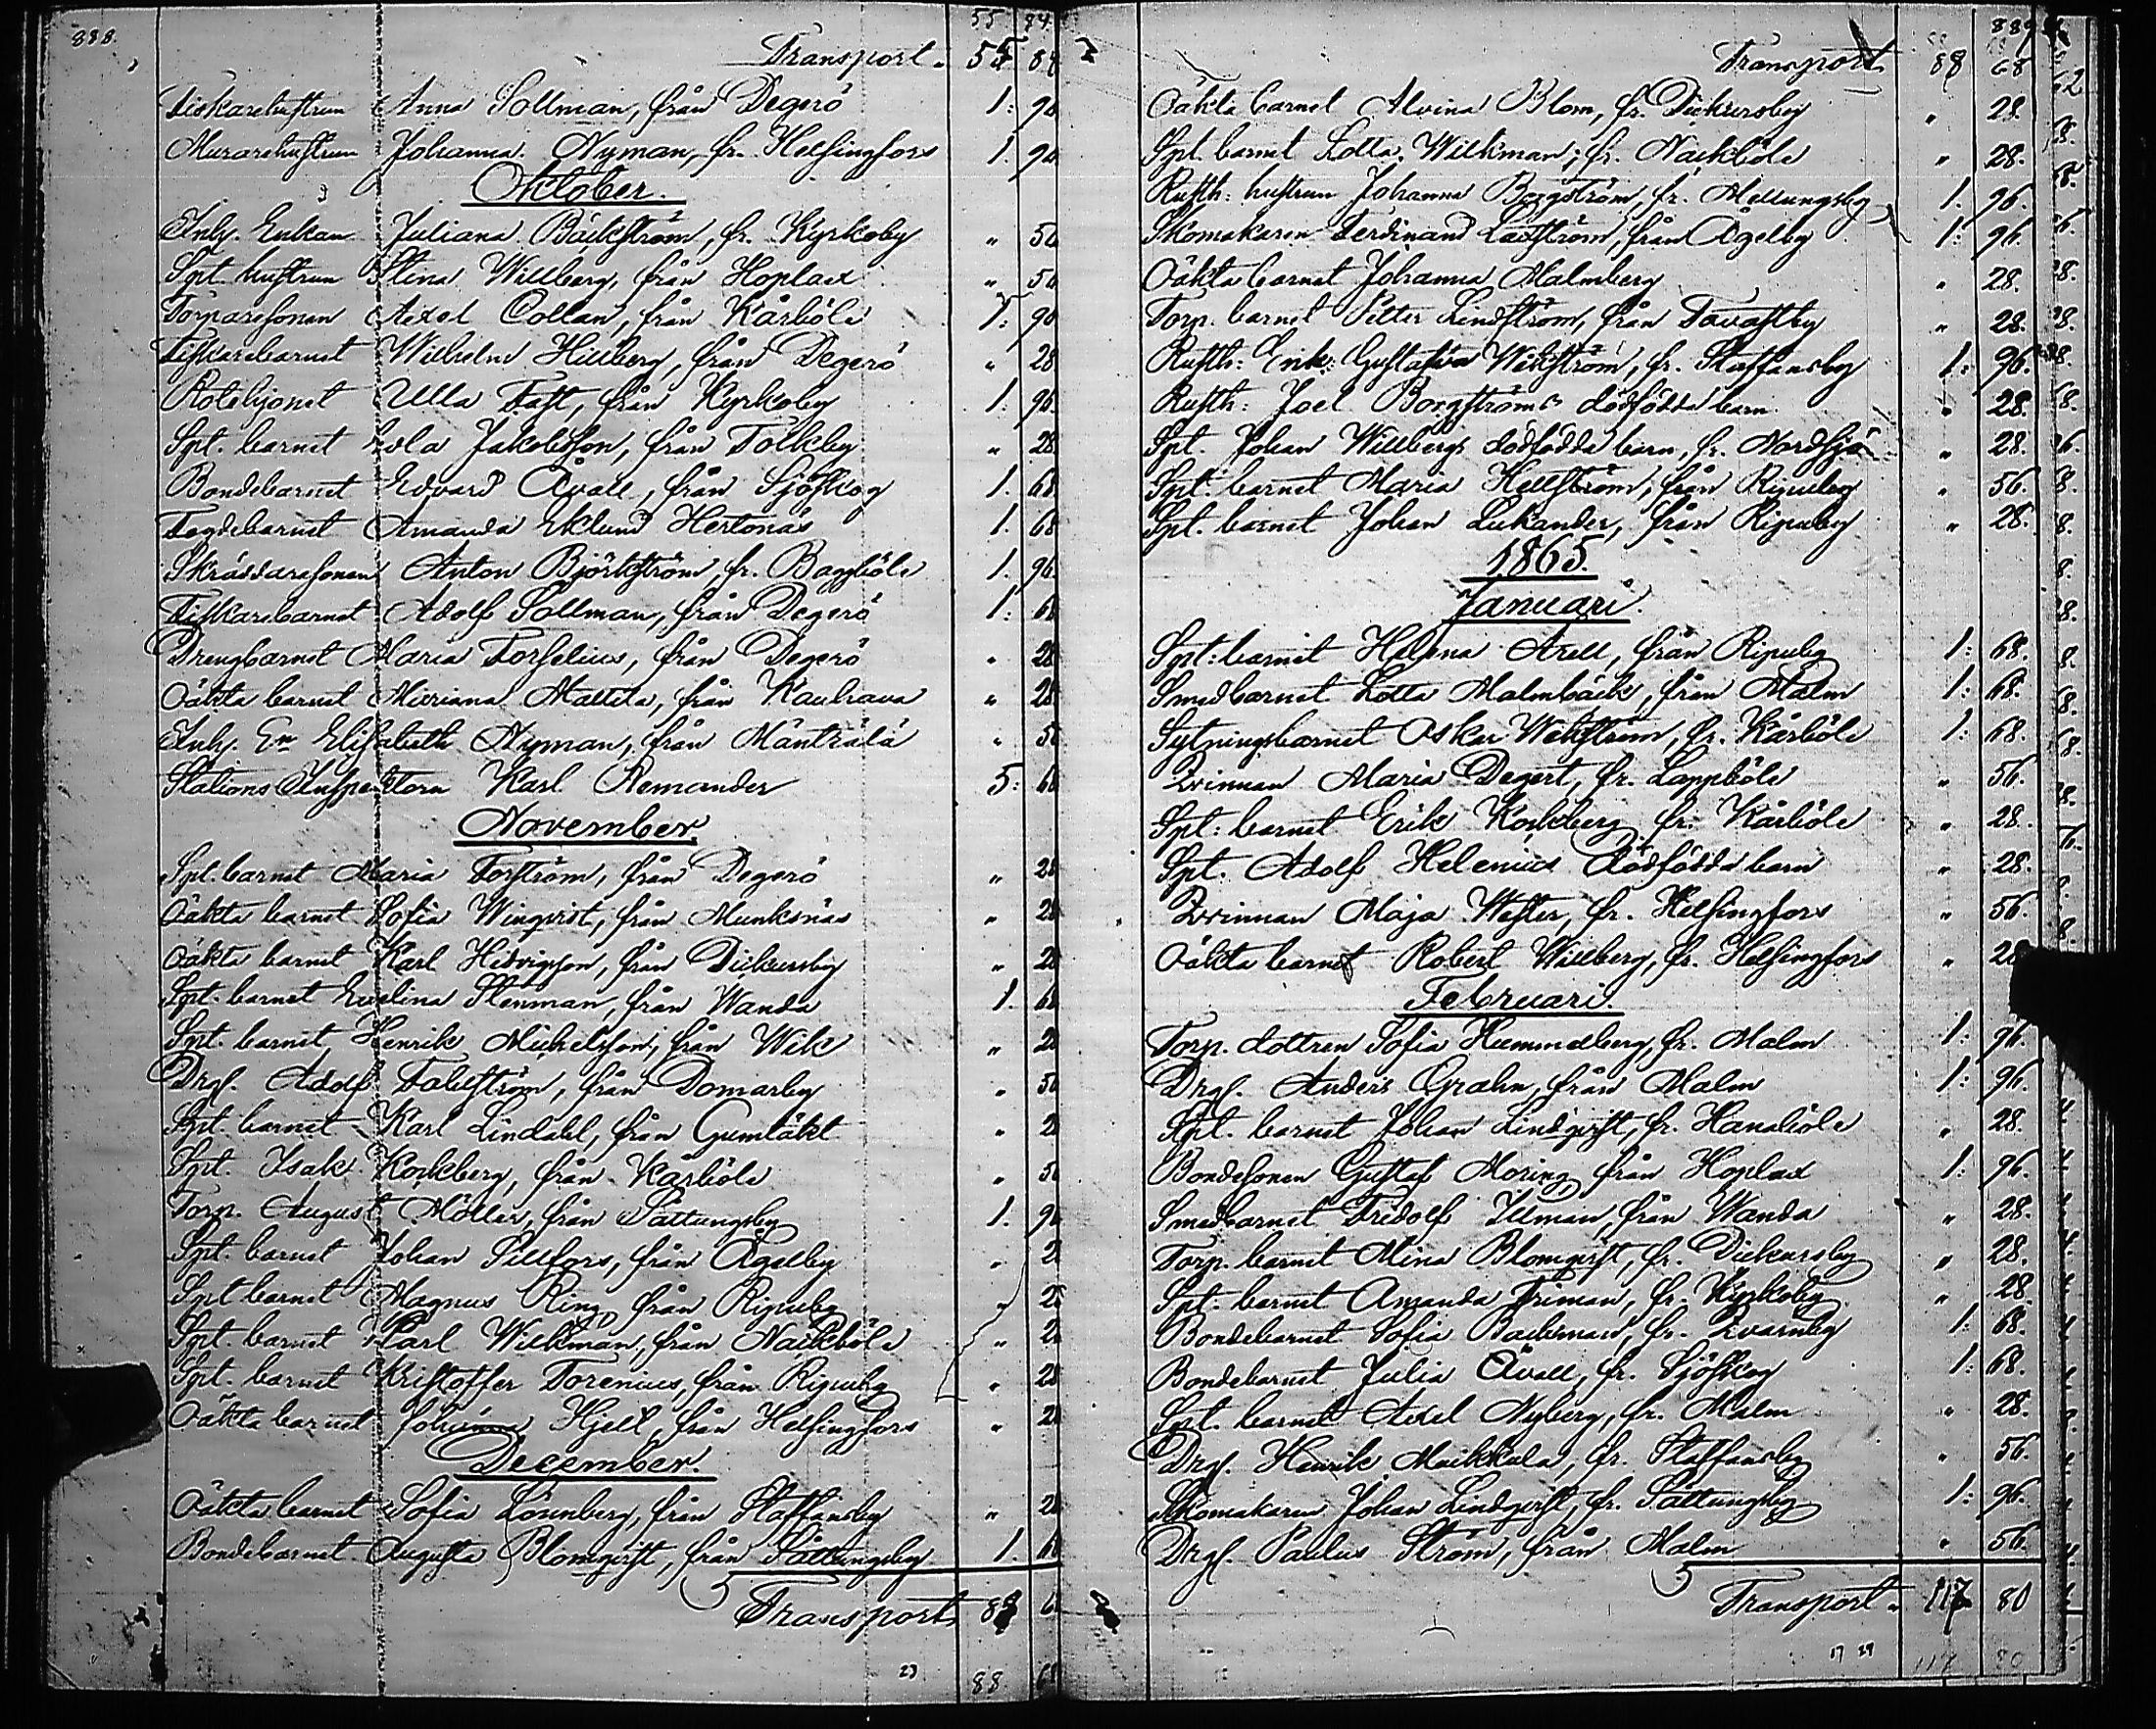 888.
55 84
Transport. 55 84
Fiskarehustrun Anna Sollman, från Degerö 1: 96
Murarehustrun Johanna Nyman, fr. Helsingfors 1. 96
Oktober.
Inhy. Enkan Juliana Bäckström, fr. Kyrkoby " 56
Spt. hustrun Stina Willberg, från Hoplax " 56
Torparesonen Axel Collan, från Kårböle 1: 96
Fiskarebarnet Wilhelm Hillberg, från Degerö " 28
Rotehjonet Ulla Fast, från Kyrkoby 1. 96.
Spt. barnet Jakobsson, från Tolkby " 28
Bondebarnet Edvard Åvall, från Sjöskog 1. 68
Fogdebarnet Amanda Eklund Hertonäs 1. 68
Skräddaresonen Anton Björkström, fr. Baggböle 1. 96.
Fiskarebarnet Adolf Sollman, från Degerö 1: 68
Drengbarnet Maria Forselius, från Degerö " 28
Oäkta barnet Miriana Mattila, från Kauhava " 28
Inhy. En Elisabeth Nyman, från Mäntsälä " 56
Stations Inspektorn Karl Remander 5: 68
November.
Spt. barnet Maria Forström, från Degerö " 28
Oäkta barnet Sofia Winqvist, från Munksnäs " 28
Oäkta barnet Karl Hedvigsson, från Dickursby " 28
Spt. barnet Evelina Stenman, från Wanda 1. 68
Spt. barnet Henrik Michelsson, från Wik " 28
Drgf. Adolf Fahlström, från Domarby " 56
Spt. barnet Karl Lindahl, från Gumtäkt " 28
Spt. Isak Korkberg, från Kårböle " 56
Torp. August Möller, från Sattungsby 1. 96
Spt. barnet Johan Sillfors, från Ågelby " 28
Spt barnet Magnus Ring, från Ripuby " 28
Spt. barnet Karl Wickman, från Nackböle " 28
Spt. barnet Kristoffer Forenius, från Ripuby " 28
Oäkta barnet Hjelt, från Helsingfors " 28
December.
Oäkta barnet Sofia Lönnberg, från Staffansby " 28
Bondebarnet Augusta Blomqvist, från Sattungsby 1. 68
Transport 88 68
23 88 68
889
Transport 88 68
Oäkta barnet Alvina Blom, fr. Dickursby " 28.
Spt. barnet Lotta Wickman, fr. Nackböle " 28.
Rusth: hustrun Johanna Borgström, fr. Mellungsby 1. 96.
Skomakaren Ferdinand Laxström, från Ågelby 1: 96.
Oäkta barnet Johanna Malmberg " 28.
Torp. barnet Petter Lindström, från Tavastby " 28.
Rusth: Enk: Gustafva Wikström, fr. Staffansby 1: 96.
Rusth: Joel Borgströms dödfödda barn " 28.
Spt. Johan Willbergs dödfödda barn, fr. Nordsjö " 28.
Spt. barnet Maria Hellström, från Ripuby " 56.
Spt. barnet Johan Lukander, från Ripuby " 28.
1865.
Januari.
Spt: barnet Helena Arell, från Ripuby 1: 68.
Smedbarnet Lotta Malmbäck, från Malm 1: 68.
Sytningsbarnet Oskar Wikström, fr. Kårböle 1: 68.
Qvinnan Maria Degert, fr. Lappböle " 56.
Spt: barnet Erik Korkberg fr. Kårböle " 28.
Spt. Adolf Helenius dödfödda barn " 28.
Qvinnan Maja Wester, fr. Helsingfors " 56.
Oäkta barnet Robert Willberg, fr. Helsingfors " 28
Februari.
Torp. dottren Sofia Hummelberg, fr. Malm 1: 96.
Drgf. Anders Grahn, från Malm 1: 96.
Spt. barnet Johan Lindqvist, fr. Hanaböle " 28.
Bondesonen Gustaf Moring från Hoplax 1: 96.
Smedbarnet Fridolf Illman, från Wanda " 28.
Torp. barnet Mina Blomqvist, fr. Dickursby " 28.
Spt. barnet Amanda Friman, fr. Kyrkoby " 28.
Bondebarnet Sofia Backman, fr. Qvarnby 1: 68.
Bondebarnet Julia Åvall, fr. Sjöskog 1: 68.
Spt. barnet Axel Nyberg, fr. Malm " 28.
Drgf. Henrik Maikkula, fr. Staffansby " 56.
Skomakaren Johan Lindqvist, fr. Sattungsby 1: 96.
Drgf. Paulus Ström, från Malm " 56.
Transport. 117 80
17 29 117 80